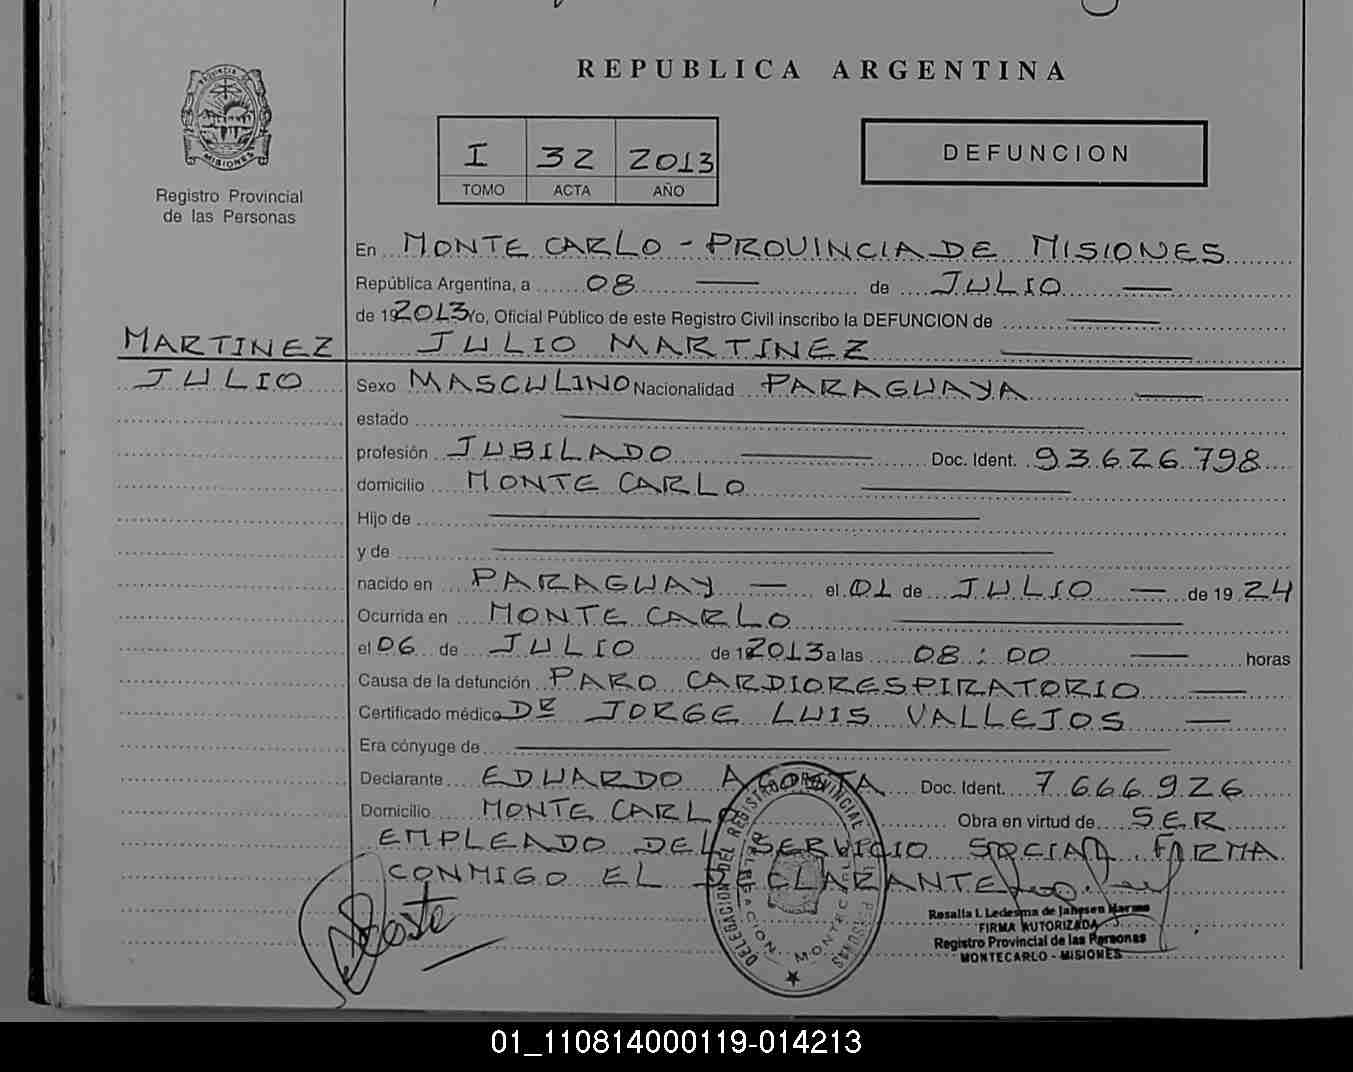 REPUBLICA ARGENTINA
PROVINCIA DE
MISIONES
Registro Provincial
de las Personas
I 32 2013
TOMO ACTA AÑO
DEFUNCION
En MONTE CARLO - PROVINCIA DE MISIONES
República Argentina, a 08 de JULIO
de 192013 Yo, Oficial Público de este Registro Civil inscribo la DEFUNCION de
MARTINEZ JULIO MARTINEZ
JULIO Sexo MASCULINO Nacionalidad PARAGUAYA
estado
profesión JUBILADO Doc. Ident. 93.626.798
domicilio MONTE CARLO
Hijo de
y de
nacido en PARAGUAY el 01 de JULIO de 1924
Ocurrida en MONTE CARLO
el 06 de JULIO de 192013 a las 08:00 horas
Causa de la defunción PARO CARDIORESPIRATORIO
Certificado médico DR JORGE LUIS VALLEJOS
Era cónyuge de
Declarante EDUARDO ACOSTA Doc. Ident. 7.666.926
Domicilio MONTE CARLO Obra en virtud de SER
EMPLEADO DEL SERVICIO SOCIAL. FIRMA
CONMIGO EL DECLARANTE
Acosta
DELEGACION DEL REGISTRO PROVINCIAL DE LAS PERSONAS
Rosalia I. Ledesma de
FIRMA AUTORIZADA
Registro Provincial de las Personas
MONTECARLO - MISIONES
01_110814000119-014213